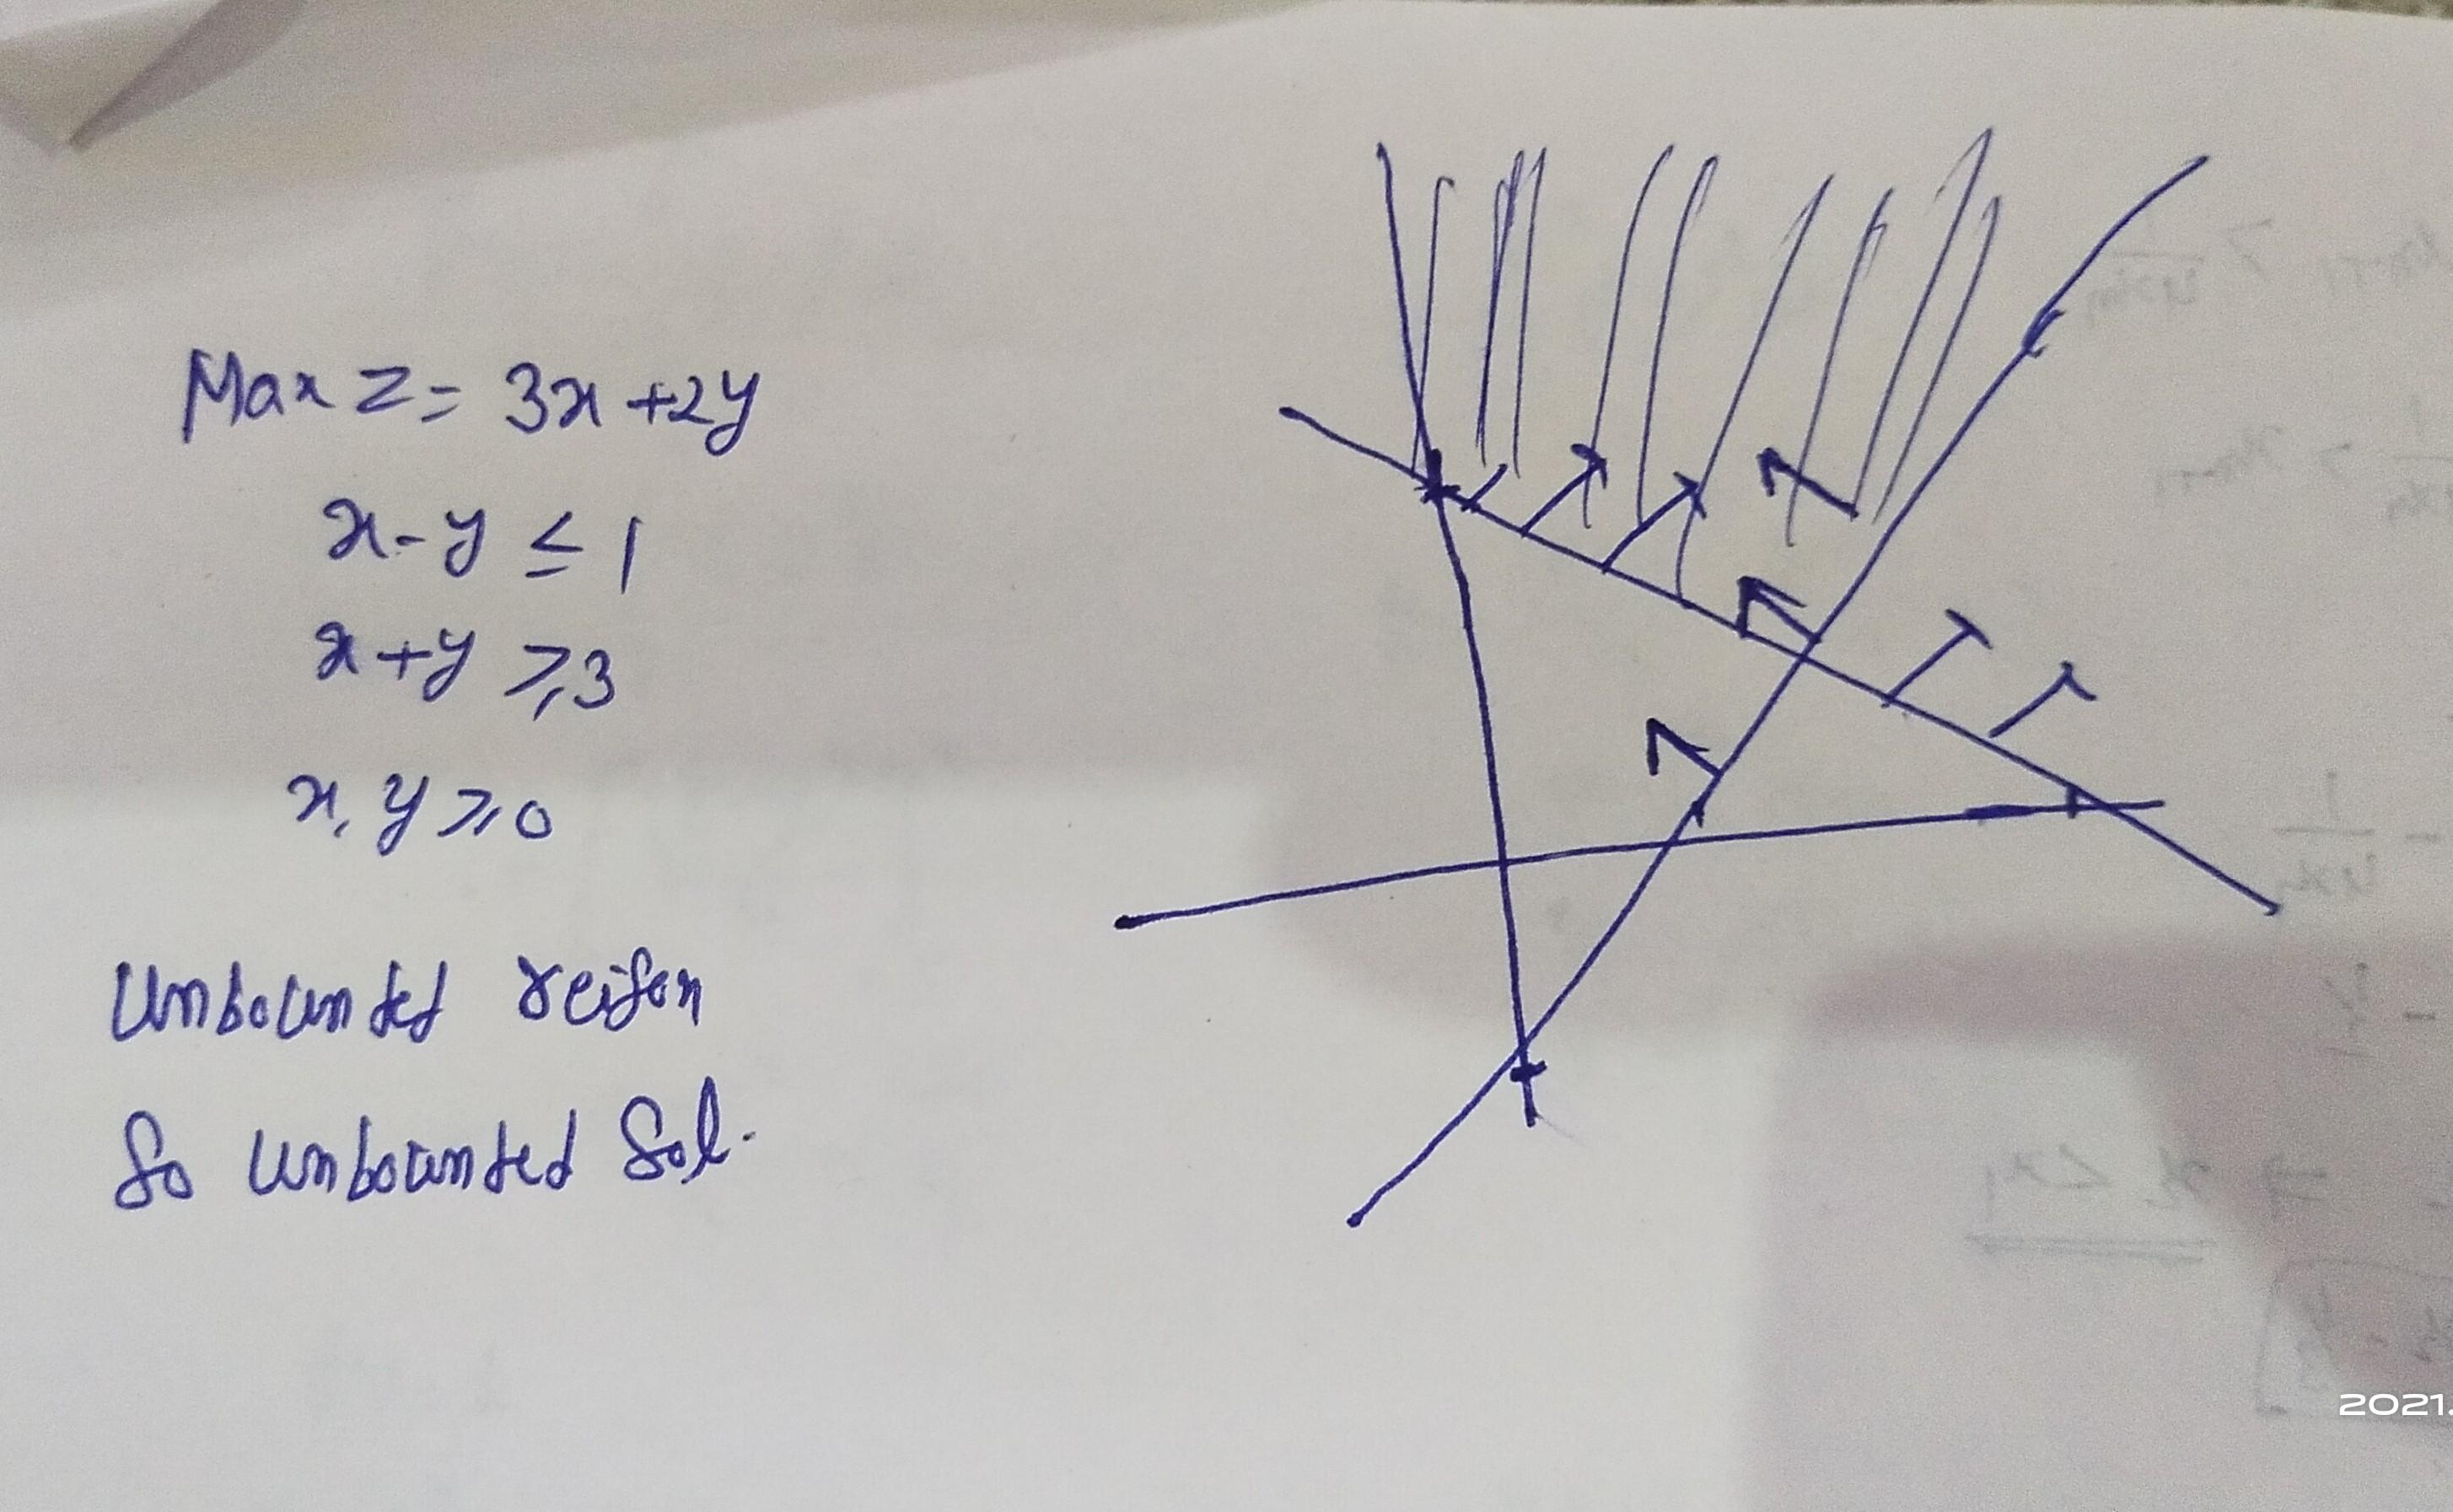 Max Z = 3x + 2y
x - y ≤ 1
x + y ≥ 3
x, y ≥ 0
Unbounded reigon
So unbounded Sol.
2021.